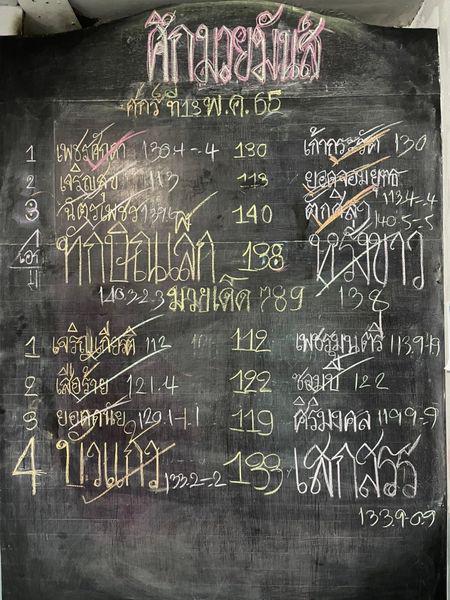 ศึกมวยมันส์
ศุกร์ ที่ 13 พ.ค. 65
1 เพชรศักดา 130.4-.4 130 เก้ากระรัต 130
2 เจริญสุข 113 113 ยอดจอมยุทธ 113.4-.4
3 140 140.5-.5
4 เอก ทักษิณเล็ก 138 138
140.3-2.3 มวยเด็ด 789
1 เจริญเกียรติ 112 112 เพชรมนตรี 113.9-1.9
2 เสือร้าย 121.4 122 ซอมบี้ 122
3 ยอดดนัย 120.1-1.1 119 ศิริมงคล 119.9-.9
4 บัวแก้ว 133.2-.2 133 เสกสรร
133.9-0.9